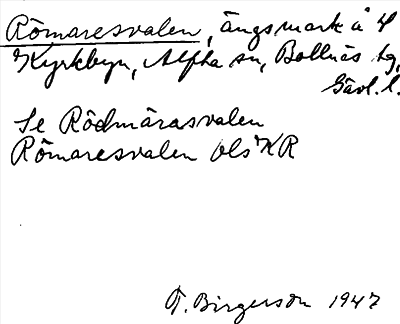 Römaresvalen, ängsmark å 4
Kyrkbyn, Alfta sn, Bollnäs tg,
Gävl. l.
Se Rödmårasvalen
Römaresvalen Ols KR
T. Birgerson 1947